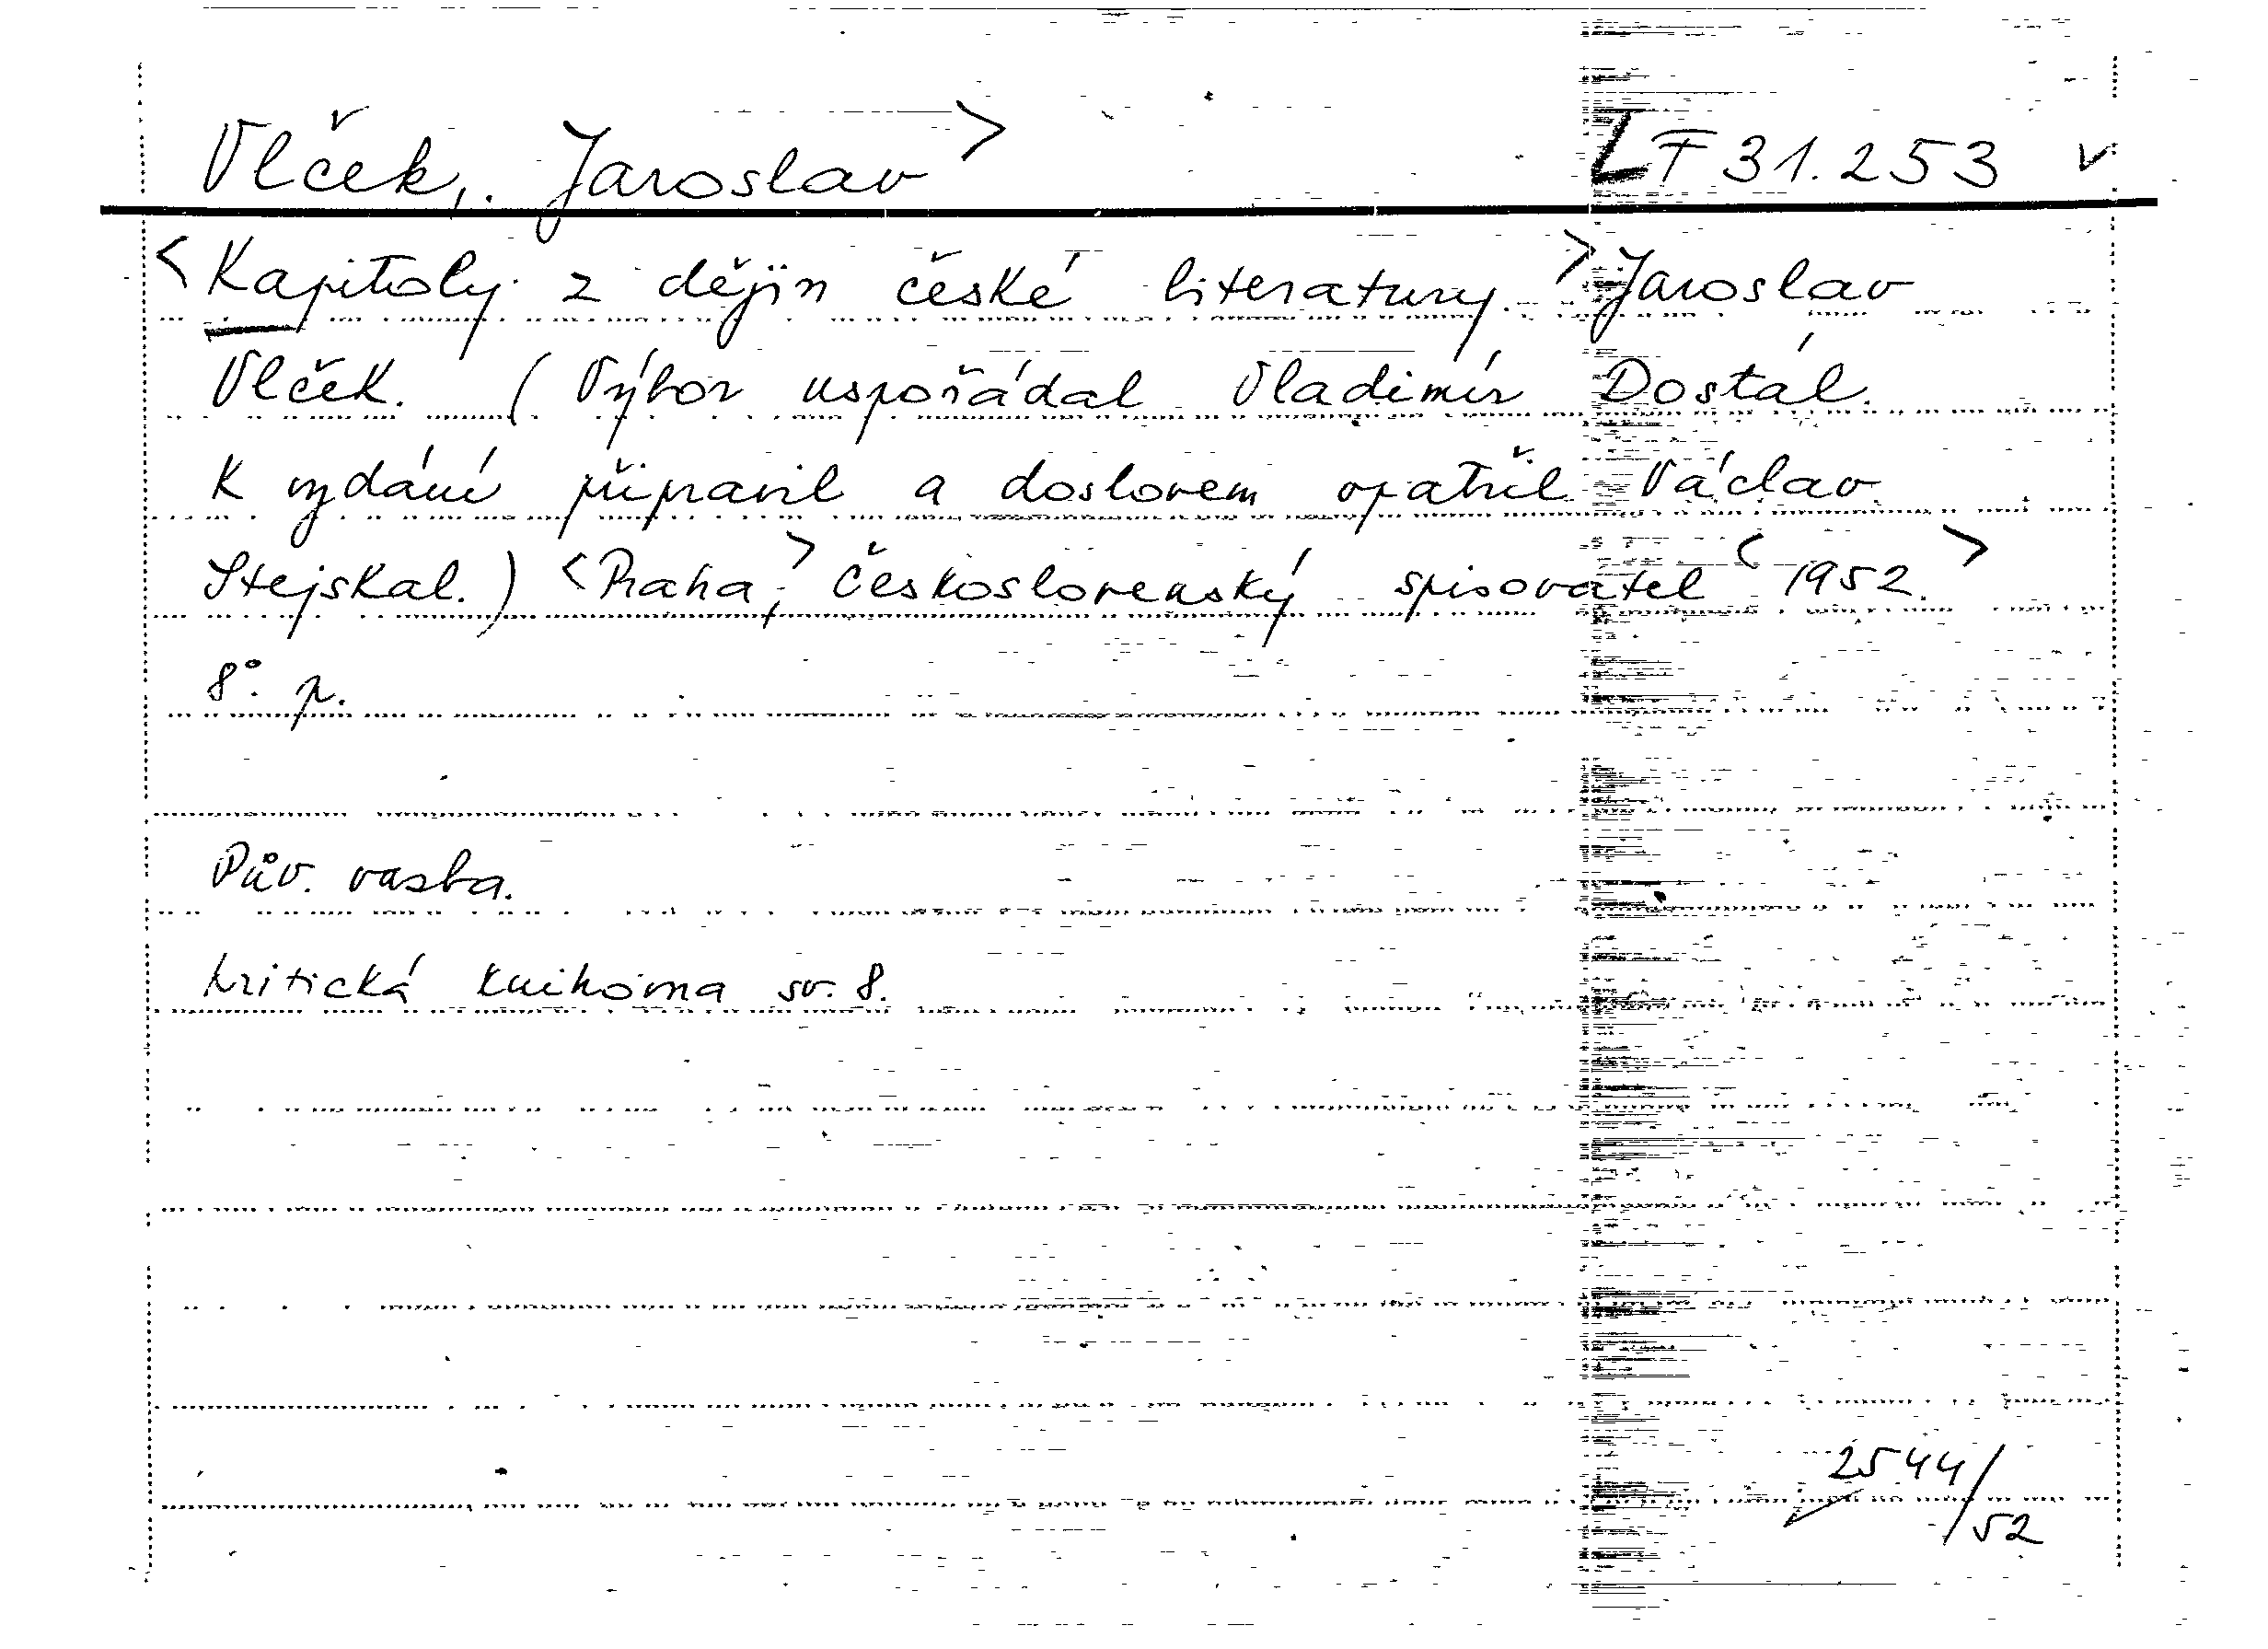 Vlček, Jaroslav> LF 31.253 v
<Kapitoly z dějin české literatury.> Jaroslav
Vlček. (Výbor uspořádal Vladimír Dostál.
K vydání připravil a doslovem opatřil Václav
Stejskal.) <Praha,> Československý spisovatel <1952.>
8°. p.
Pův. vazba.
Kritická knihovna sv. 8.
2544/52